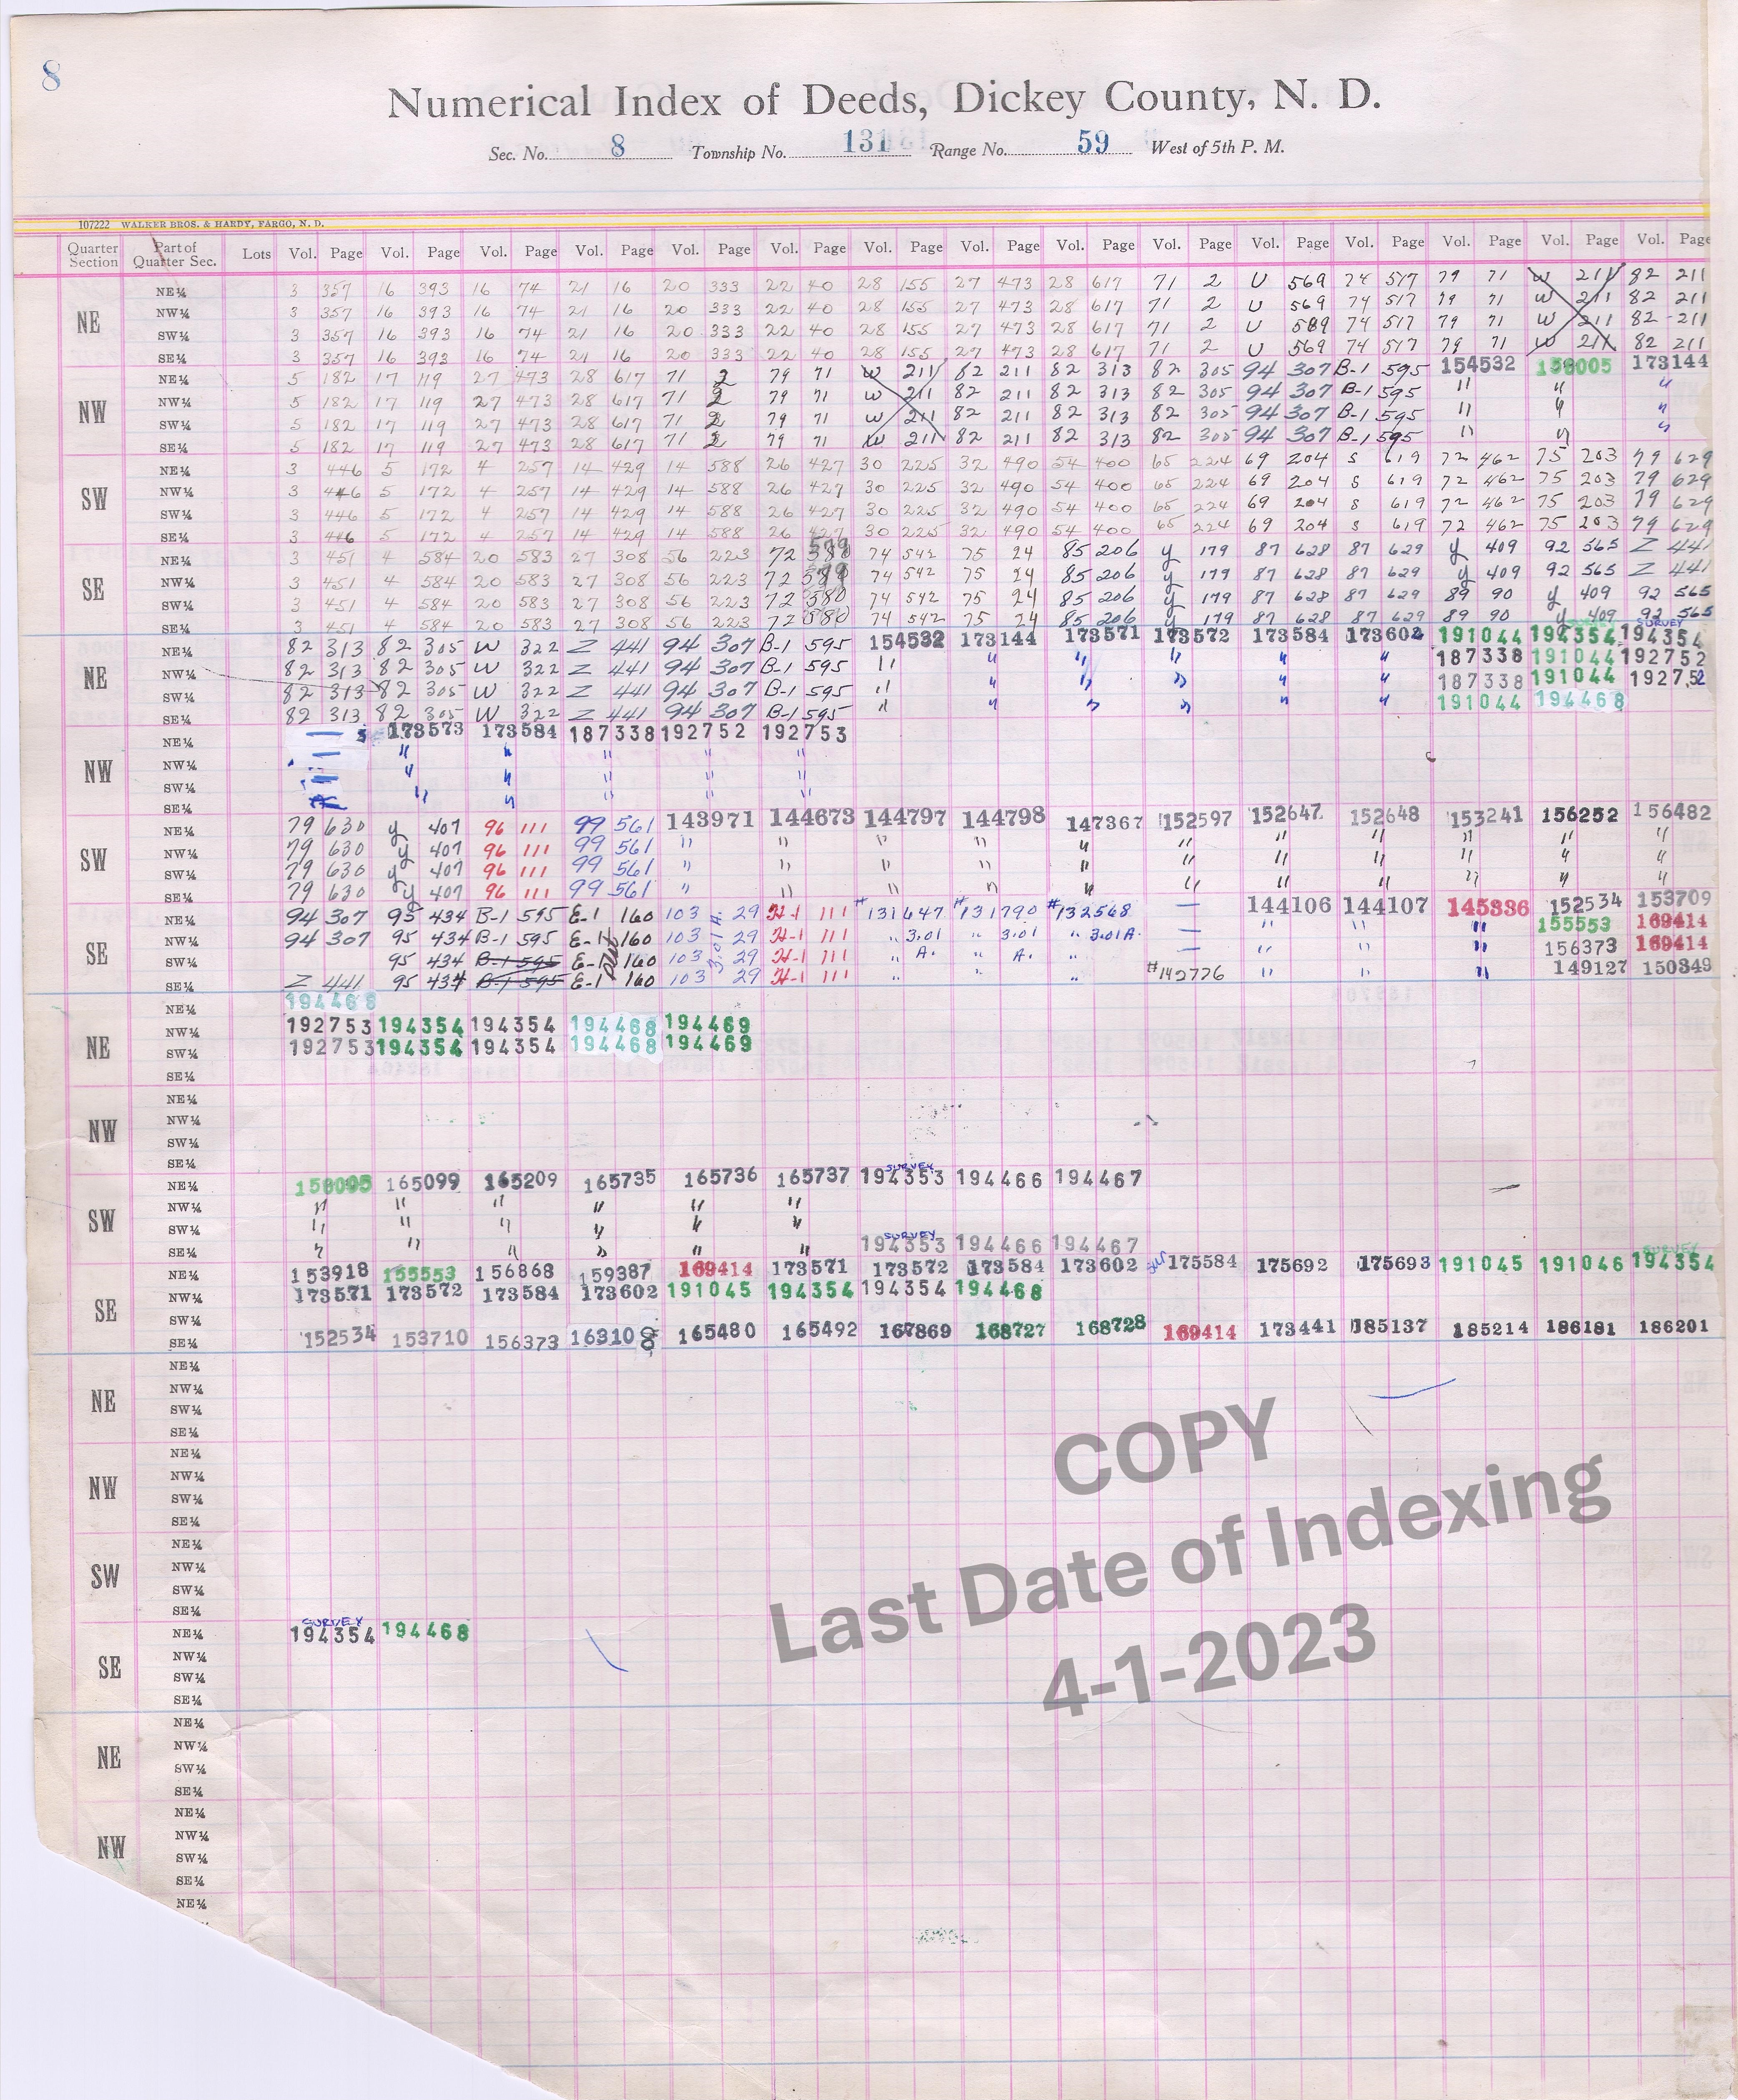 8
Numerical Index of Deeds, Dickey County, N. D.
Sec. No. 8 Township No. 131 Range No. 59 West of 5th P. M.
107222 WALKER BROS. & HARDY, FARGO, N. D.
Quarter Section Part of Quarter Sec. Lots Vol. Page Vol. Page Vol. Page Vol. Page Vol. Page Vol. Page Vol. Page Vol. Page Vol. Page Vol. Page Vol. Page Vol. Page Vol. Page Vol. Page Vol. Page
NE
NE¼ 3 357 16 393 16 74 21 16 20 333 22 40 28 155 27 473 28 617 71 2 U 569 74 517 79 71 W 211 82 211
NW¼ 3 357 16 393 16 74 21 16 20 333 22 40 28 155 27 473 28 617 71 2 U 569 74 517 79 71 W 211 82 211
SW¼ 3 357 16 393 16 74 21 16 20 333 22 40 28 155 27 473 28 617 71 2 U 589 74 517 79 71 W 211 82 211
SE¼ 3 357 16 393 16 74 21 16 20 333 22 40 28 155 27 473 28 617 71 2 U 569 74 517 79 71 W 211 82 211
NW
NE¼ 5 182 17 119 27 473 28 617 71 2 79 71 W 211 82 211 82 313 82 305 94 307 B-1 595 154532 158005 173144
NW¼ 5 182 17 119 27 473 28 617 71 2 79 71 W 211 82 211 82 313 82 305 94 307 B-1 595 " " "
SW¼ 5 182 17 119 27 473 28 617 71 2 79 71 W 211 82 211 82 313 82 305 94 307 B-1 595 " " "
SE¼ 5 182 17 119 27 473 28 617 71 2 79 71 W 211 82 211 82 313 82 305 94 307 B-1 595 " "
SW
NE¼ 3 446 5 172 4 257 14 429 14 588 26 427 30 225 32 490 54 400 65 224 69 204 S 619 72 462 75 203 79 629
NW¼ 3 446 5 172 4 257 14 429 14 588 26 427 30 225 32 490 54 400 65 224 69 204 S 619 72 462 75 203 79 629
SW¼ 3 446 5 172 4 257 14 429 14 588 26 427 30 225 32 490 54 400 65 224 69 204 S 619 72 462 75 203 79 629
SE¼ 3 446 5 172 4 257 14 429 14 588 26 427 30 225 32 490 54 400 65 224 69 204 S 619 72 462 75 203 79 629
SE
NE¼ 3 451 4 584 20 583 27 308 56 223 72 74 542 75 24 85 206 y 179 87 628 87 629 y 409 92 565 Z 441
NW¼ 3 451 4 584 20 583 27 308 56 223 72 74 542 75 24 85 206 y 179 87 628 87 629 y 409 92 565 Z 441
SW¼ 3 451 4 584 20 583 27 308 56 223 72 580 74 542 75 24 85 206 y 179 87 628 87 629 89 90 y 409 92 565
SE¼ 3 451 4 584 20 583 27 308 56 223 72 580 74 542 75 24 85 206 y 179 87 628 87 629 89 90 y 409 92 565
SURVEY
NE
NE¼ 82 313 82 305 W 322 Z 441 94 307 B-1 595 154532 173144 173571 173572 173584 173602 191044 194354 194354
NW¼ 82 313 82 305 W 322 Z 441 94 307 B-1 595 " " " " " " 187338 191044 192752
SW¼ 82 313 82 305 W 322 Z 441 94 307 B-1 595 " " " " " " 187338 191044 192752
SE¼ 82 313 82 305 W 322 Z 441 94 307 B-1 595 " " " " " " 191044 194468
NW
NE¼ — 173573 173584 187338 192752 192753
NW¼ — " " " " "
SW¼ — " " " " "
SE¼ " " " " "
SW
NE¼ 79 630 y 407 96 111 99 561 143971 144673 144797 144798 147367 152597 152647 152648 153241 156252 156482
NW¼ 79 630 y 407 96 111 99 561 " " " " " " " " " " "
SW¼ 79 630 y 407 96 111 99 561 " " " " " " " " " " "
SE¼ 79 630 y 407 96 111 99 561 " " " " " " " " " " "
SE
NE¼ 94 307 95 434 B-1 595 E-1 160 103 29 H-1 111 #131647 #131790 #132568 — 144106 144107 145336 152534 153709
NW¼ 94 307 95 434 B-1 595 E-1 160 103 29 H-1 111 " 3.01 " 3.01 " 3.01A. — " " " 155553 169414
SW¼ 95 434 B-1 595 E-1 160 103 29 H-1 111 " A. " A. " — " " " 156373 169414
SE¼ Z 441 95 434 B-1 595 E-1 160 103 29 H-1 111 " " " #142776 " " " 149127 150349
3.01 A.
NE
NE¼ 194468
NW¼ 192753 194354 194354 194468 194469
SW¼ 192753 194354 194354 194468 194469
SE¼
NW
NE¼
NW¼
SW¼
SE¼
SURVEY
SW
NE¼ 158005 165099 165209 165735 165736 165737 194353 194466 194467
NW¼ " " " " " "
SW¼ " " " " " "
SURVEY
SE¼ " " " " " " 194353 194466 194467
SURVEY
SE
NE¼ 153918 155553 156868 159387 169414 173571 173572 173584 173602 175584 175692 175693 191045 191046 194354
NW¼ 173571 173572 173584 173602 191045 194354 194354 194468
SW¼
SE¼ 152534 153710 156373 163100 165480 165492 167869 168727 168728 169414 173441 185137 185214 186181 186201
NE
NE¼
NW¼
SW¼
SE¼
NW
NE¼
NW¼
SW¼
SE¼
SW
NE¼
NW¼
SW¼
SE¼
SURVEY
SE
NE¼ 194354 194468
NW¼
SW¼
SE¼
NE
NE¼
NW¼
SW¼
SE¼
NW
NE¼
NW¼
SW¼
SE¼
NE¼
COPY
Last Date of Indexing
4-1-2023